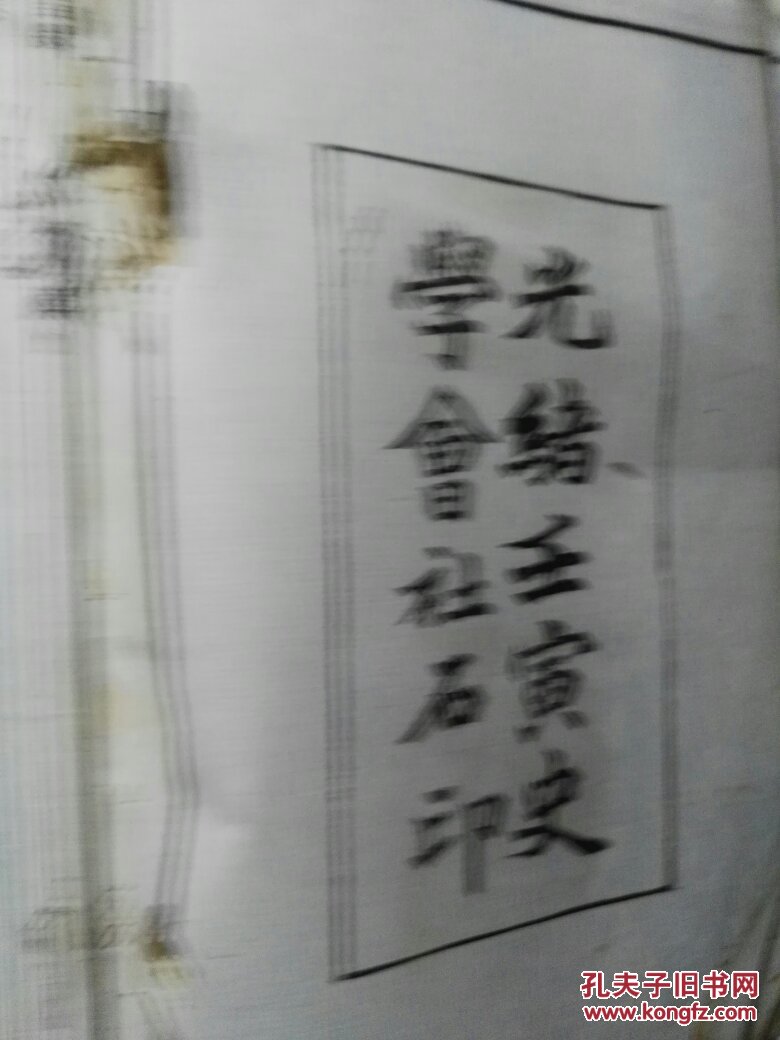 光緒壬寅史
學會社石印
孔夫子旧书网
www.kongfz.com